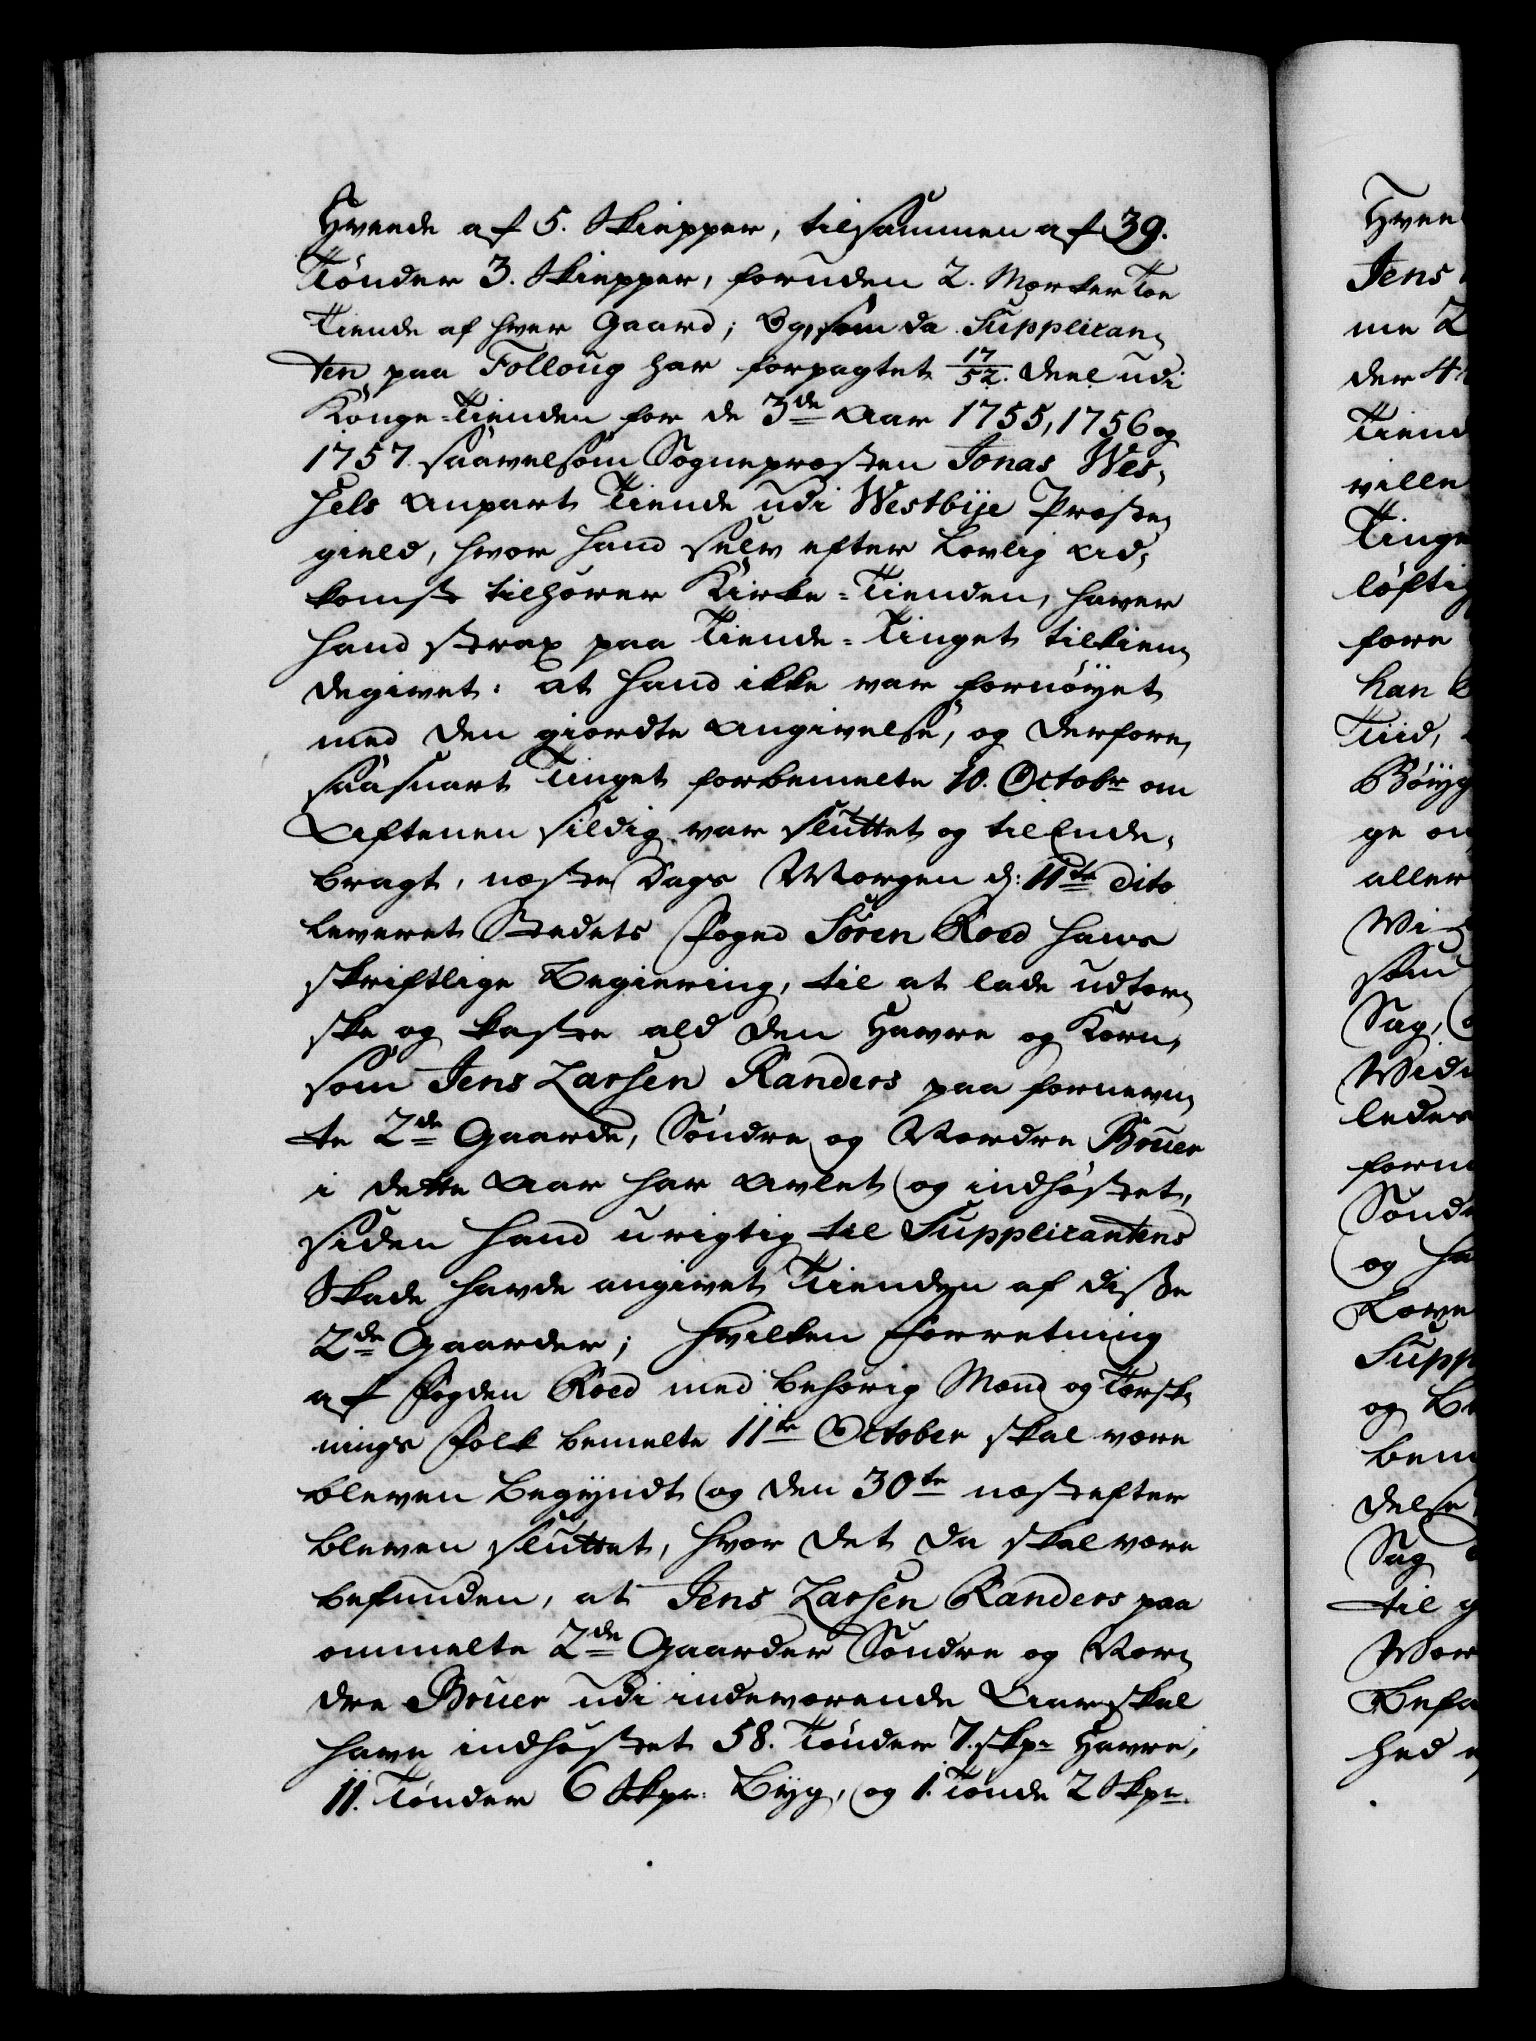 Hveede af 5. Skiepper, tilsammen af 39.
Tönder 3. Skiepper, foruden 2. Mærker Toe
Tiende af hver Gaard; Og, som da Supplican„
ten paa Folloug har forpagtet 17/52. Deel udi
Konge-Tienden for de 3de Aar 1755, 1756 og
1757. saavelsom Sognepræsten Jonas Wes„
sels Anpart Tiende udi Westbije Præste„
gield, hvor hand selv efter lovlig Ad„
komst tilhører Kirke-Tienden, haver
hand strax paa Tiende-Tinget tilkien„
degivet: at hand ikke var fornöyet
med den giordte Angivelse, og derfore,
saasnart Tinget forbemelte 10. Octobr om
Aftenen sildig var sluttet og til Ende„
bragt, næste Dags Morgen d: 11te dito
leveret Stedets Foged Sören Roed hans
skriftlige Begiering, til at lade udtær„
ske og kaste ald den Havre og Korn,
som Jens Larsen Randers paa fornevn„
te 2de Gaarde, Söndre og Nordre Brüer
i dette Aar har avlet og indhöstet,
siden hand urigtig til Supplicantens
Skade havde angivet Tienden af disse
2de Gaarder; Hvilken Forretning
af Fogden Roed med behörig Mænd og Tærsk„
nings Folk bemelte 11te October skal være
bleven begyndt og den 30te næstefter
bleven sluttet, hvor det da skal være
befunden, at Jens Larsen Randers paa
ommelte 2de Gaarder Söndre og Nor„
dre Brüer udi indeværende Aar skal
have indhöstet 58. Tönder 7. skpr Havre,
11. Tönder 6 Skpr: Byg, og 1. Tönde 2 Skpr.
Jens
me 2
der 4
Tiend
ville
Tinge
löftig
fore
han
Tiid,
ge
aller
som
Sag,
leder
Sönd
og ha
Love
Supp
og
bem
delse
Sag
til
Befa
hed